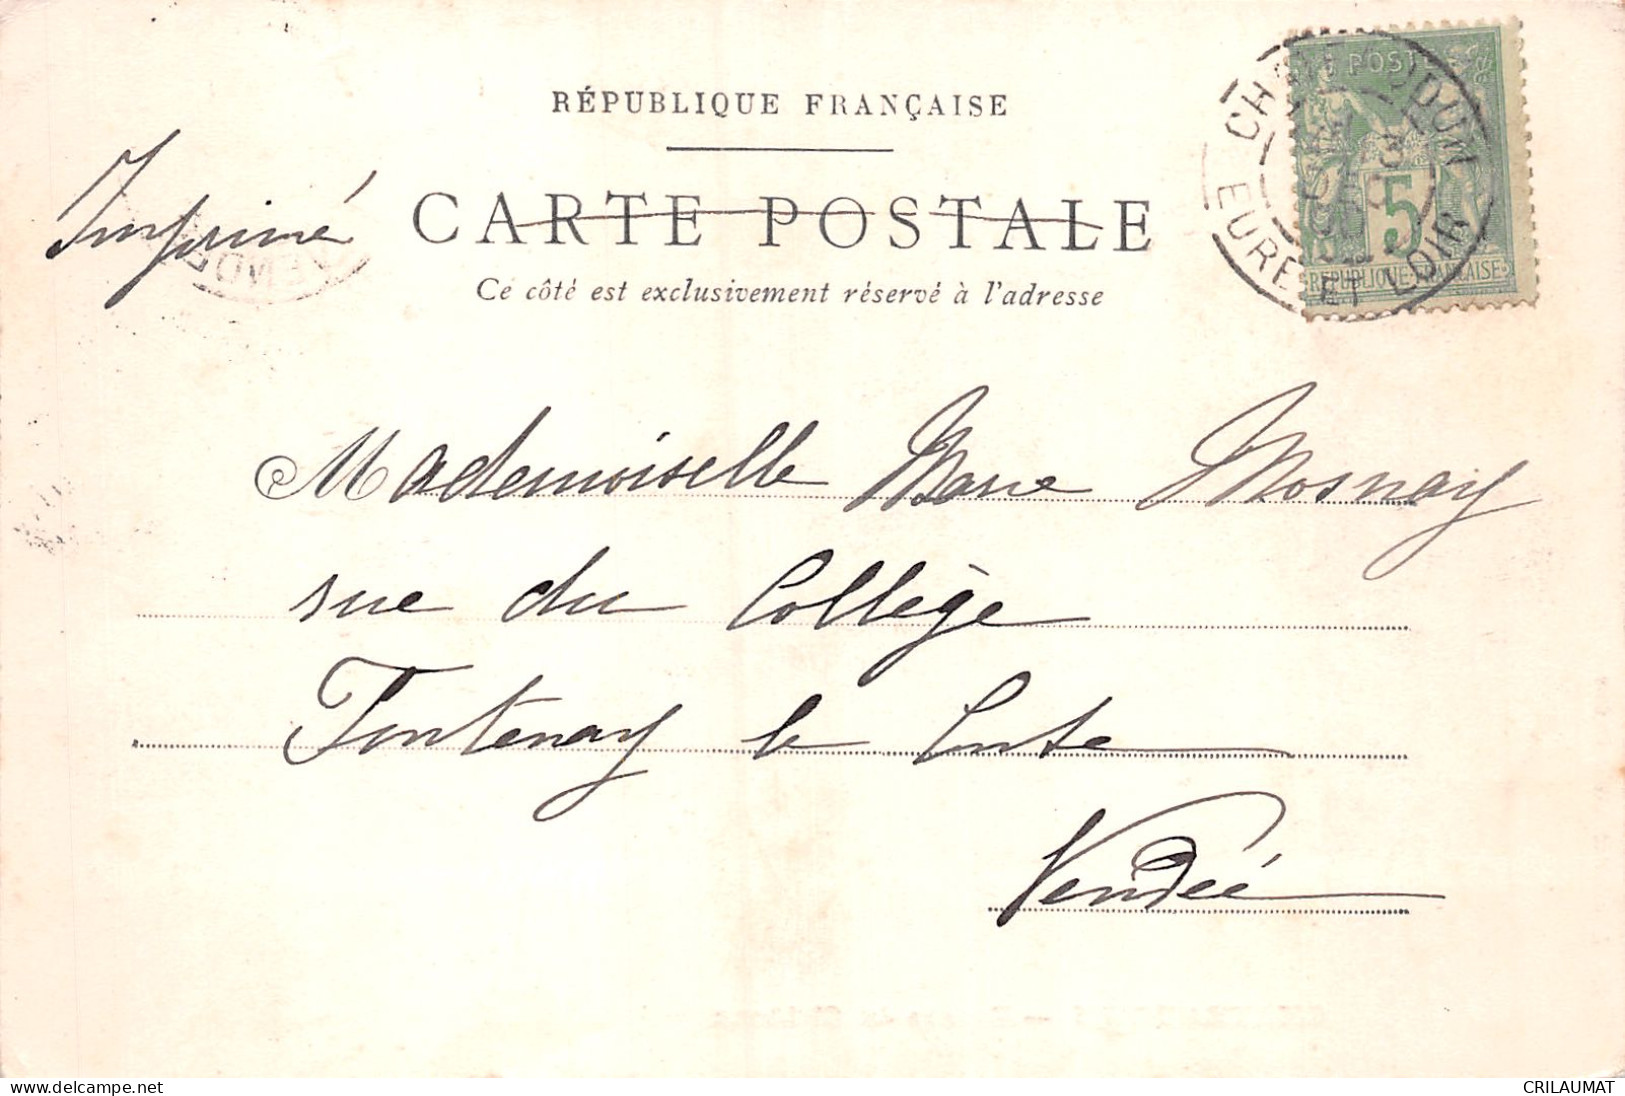 RÉPUBLIQUE FRANÇAISE
CARTE POSTALE
Ce côté est exclusivement réservé à l'adresse
Imprimé
CHATEAUDUN
EURE ET LOIR
POSTE
5
REPUBLIQUE FRANÇAISE
Mademoiselle Marie Mosnay
rue du Collège
Fontenay le Comte
Vendée
www.delcampe.net
CRILAUMAT